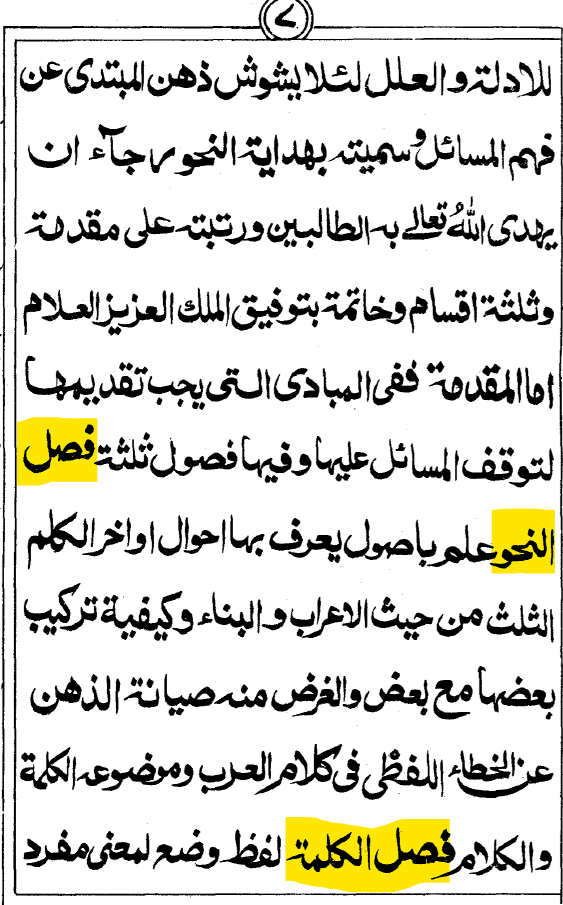 ٧
للادلة والعلل لئلا يشوش ذهن المبتدى عن
فهم المسائل وسميته بهداية النحو رجآء ان
يهدى اللهُ تعالى به الطالبين ورتبته على مقدمة
وثلثة اقسام وخاتمة بتوفيق الملك العزيز العلام
اما المقدمة ففى المبادى التى يجب تقديمها
لتوقف المسائل عليها وفيها فصول ثلثة فصل
النحو علم باصول يعرف بها احوال اواخر الكلم
الثلث من حيث الاعراب والبناء وكيفية تركيب
بعضها مع بعض والغرض منه صيانة الذهن
عن الخطاء اللفظى فى كلام العرب وموضوعه الكلمة
والكلام فصل الكلمة لفظ وضع لمعنى مفرد